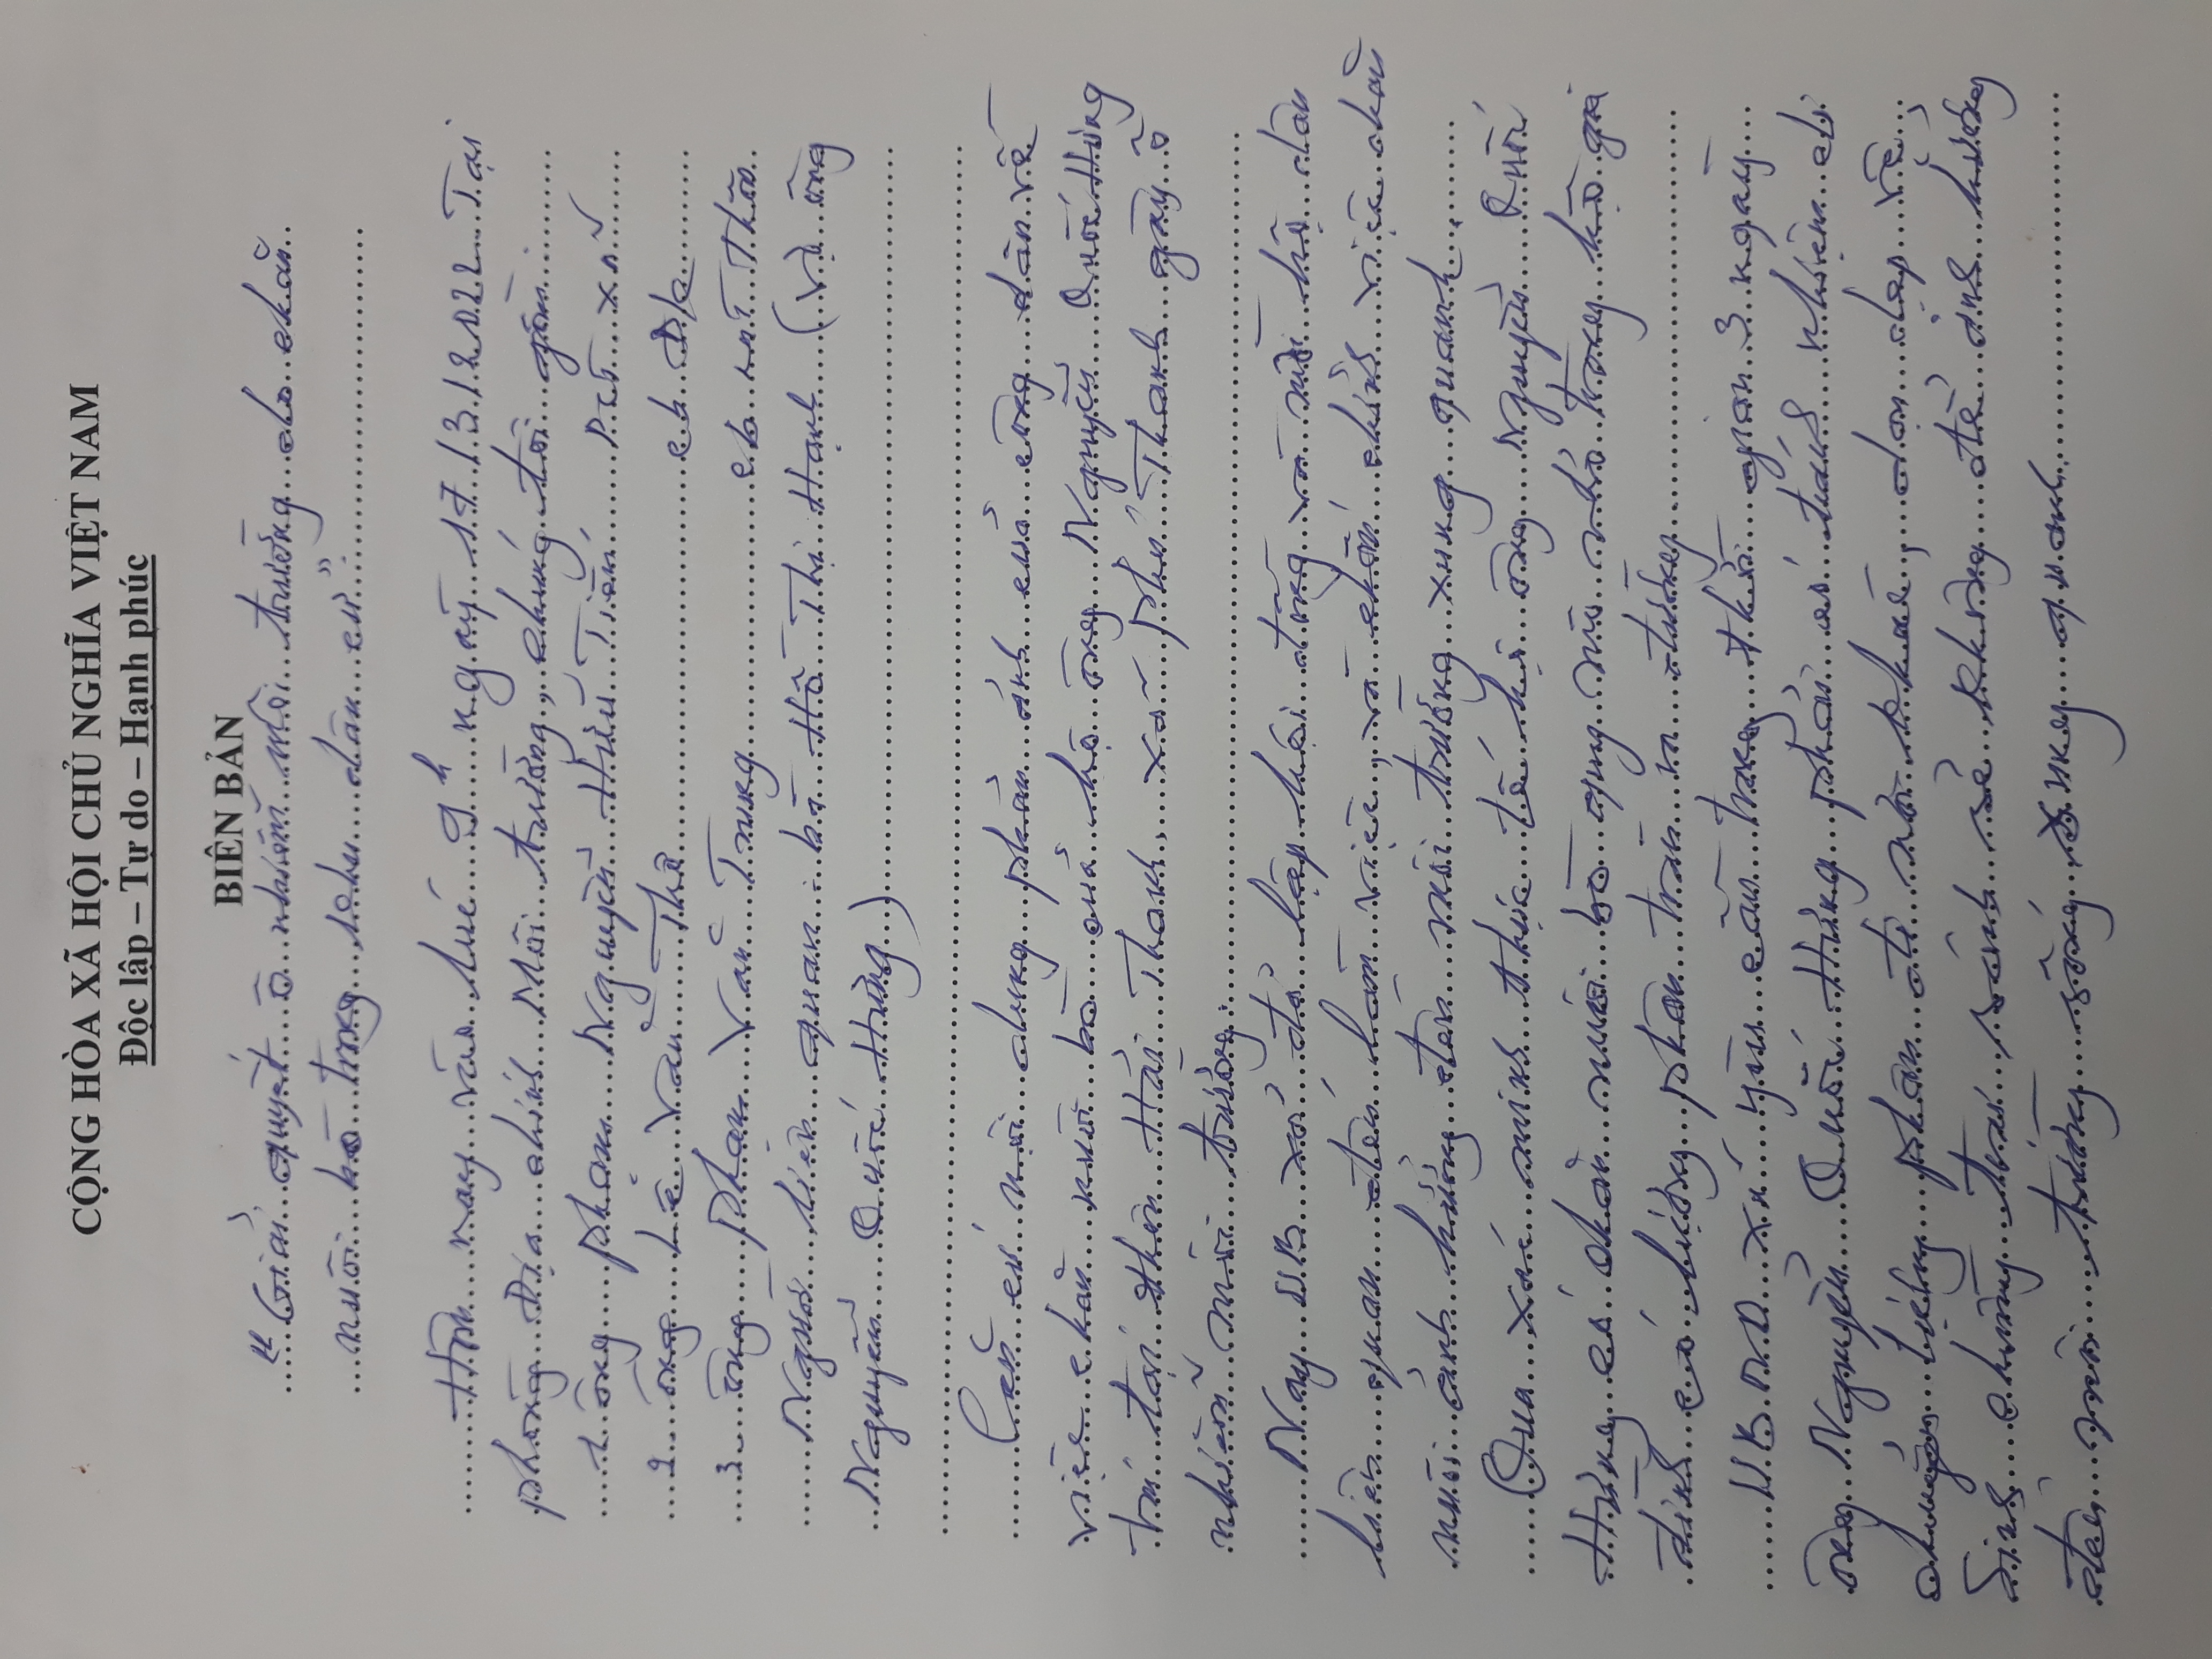 CỘNG HÒA XÃ HỘI CHỦ NGHĨA VIỆT NAM
Độc lập – Tự do – Hạnh phúc
BIÊN BẢN
"Giải quyết ô nhiễm môi trường do chăn
nuôi bò trong khu dân cư"
Hôm nay vào lúc 9h ngày 17/3/2022 Tại
phòng Địa chính Môi trường, chúng tôi gồm:
1- ông Phan Nguyễn Hữu Tiến PCT xã
2- ông Lê Văn Thô CB Đ/c
3- ông Phan Văn Trung CB MT Thôn
Người liên quan: bà Hồ Thị Hạnh (vợ ông
Nguyễn Quốc Hùng)
Căn cứ nội dung phản ánh của công dân về
việc chăn nuôi bò của hộ ông Nguyễn Quốc Hùng
trú tại thôn Hải Thanh, xã Phú Thanh gây ô
nhiễm môi trường.
Nay UB xã đã lập hội đồng và mời hộ dân
liên quan đến làm việc và chấn chỉnh việc chăn
nuôi ảnh hưởng đến môi trường xung quanh.
Qua xác minh thực tế hộ ông Nguyễn Quốc
Hùng có chăn nuôi bò quy mô nhỏ trong hộ gia
đình có lượng phân tràn ra đường
UBND xã yêu cầu trong thời gian 3 ngày
ông Nguyễn Quốc Hùng phải có trách nhiệm di
chuyển lượng phân đi nơi khác, dọn dẹp vệ
sinh chuồng trại sạch sẽ không để ảnh hưởng
đến môi trường sống xung quanh.